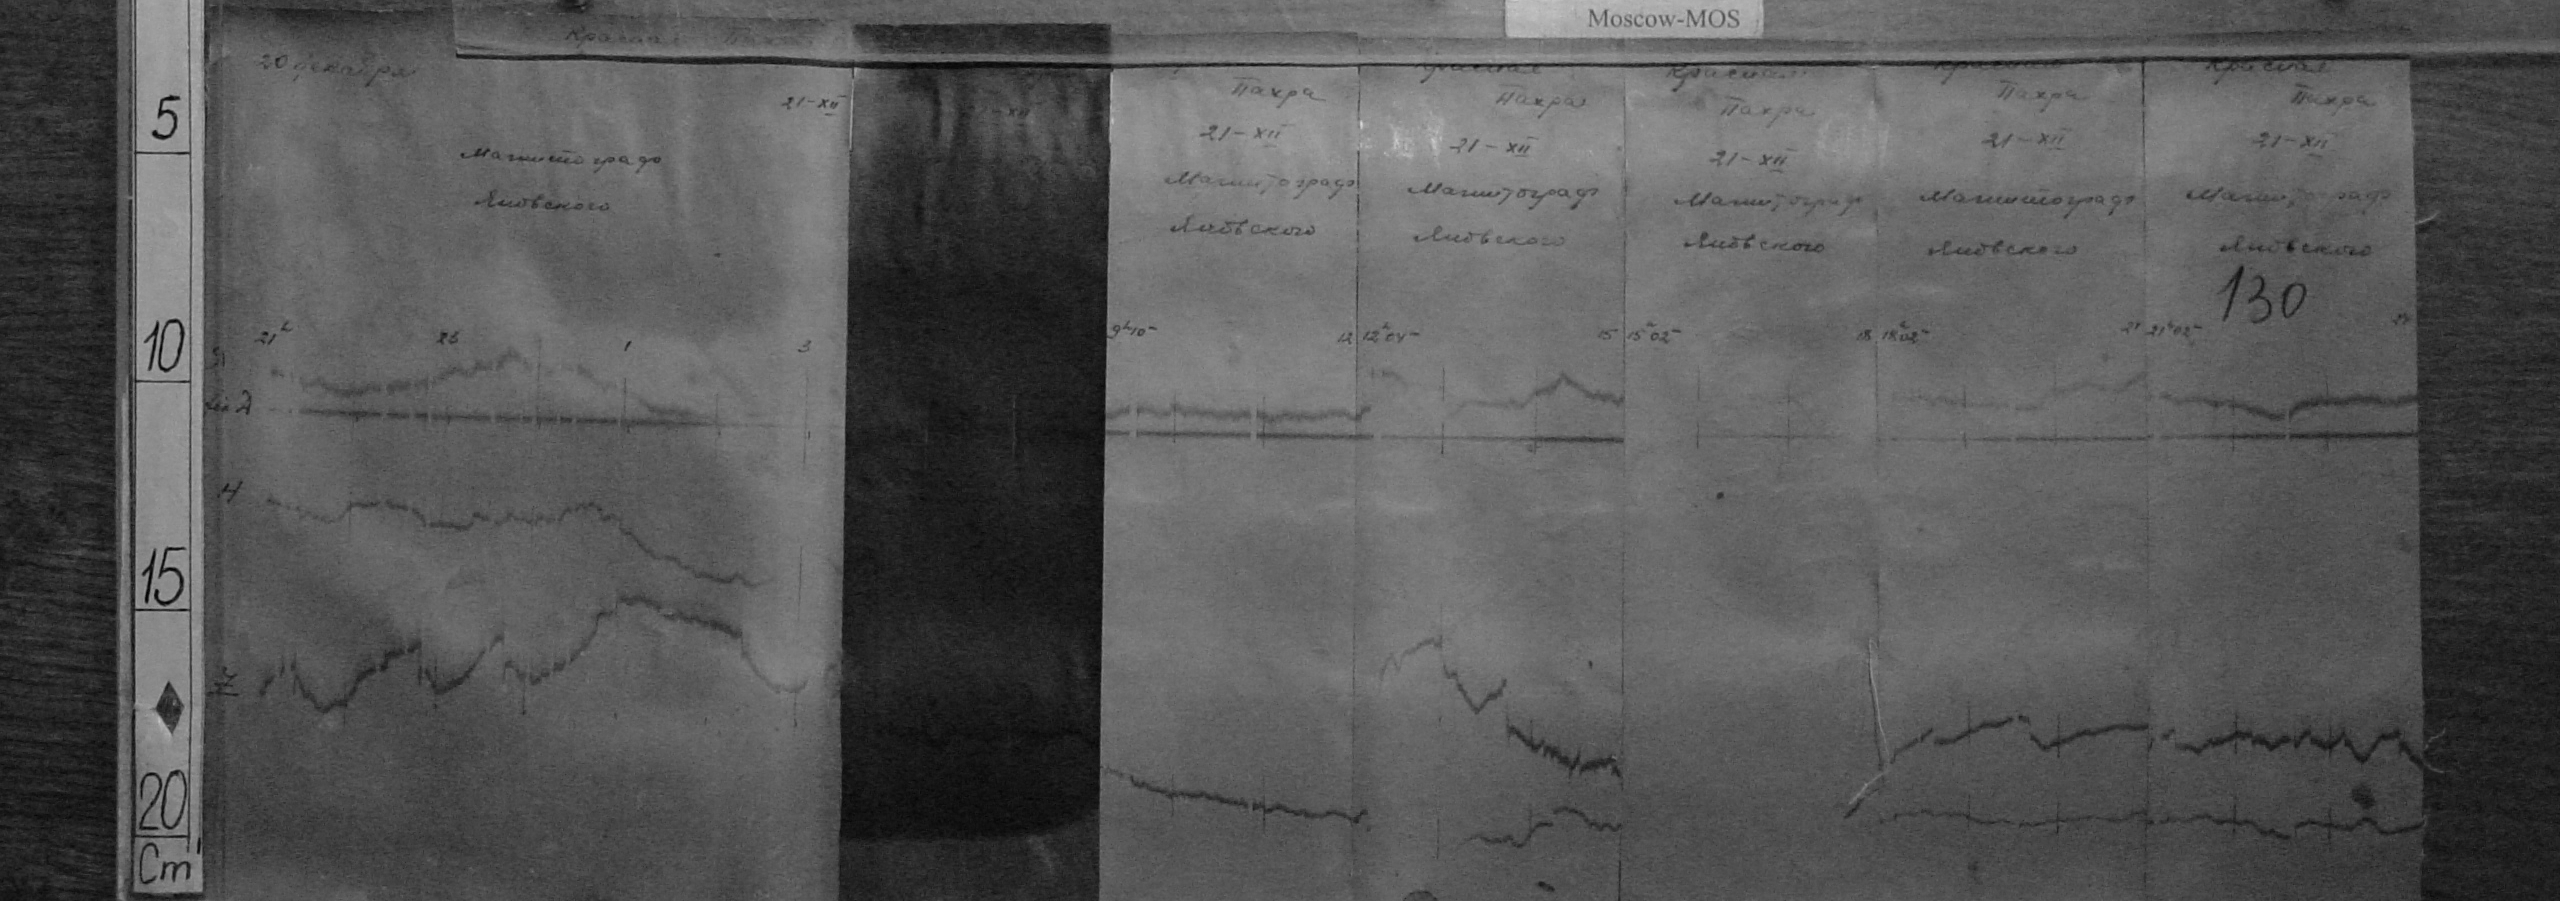 Moscow-MOS
5
10
15
20
Cm
Красная
20 декабря
21-XII
Магнитограф
Яновского
21ʰ
1
3
D
H
Z
Пахра
21-XII
Магнитограф
Яновского
9ʰ10ᵐ 12
Красная
Пахра
21-XII
Магнитограф
Яновского
12ʰ04ᵐ 15
Красная
Пахра
21-XII
Магнитограф
Яновского
15ʰ02ᵐ 18
Красная
Пахра
21-XII
Магнитограф
Яновского
18ʰ02ᵐ 21
Красная
Пахра
21-XII
Магнитограф
Яновского
130
21ʰ02ᵐ